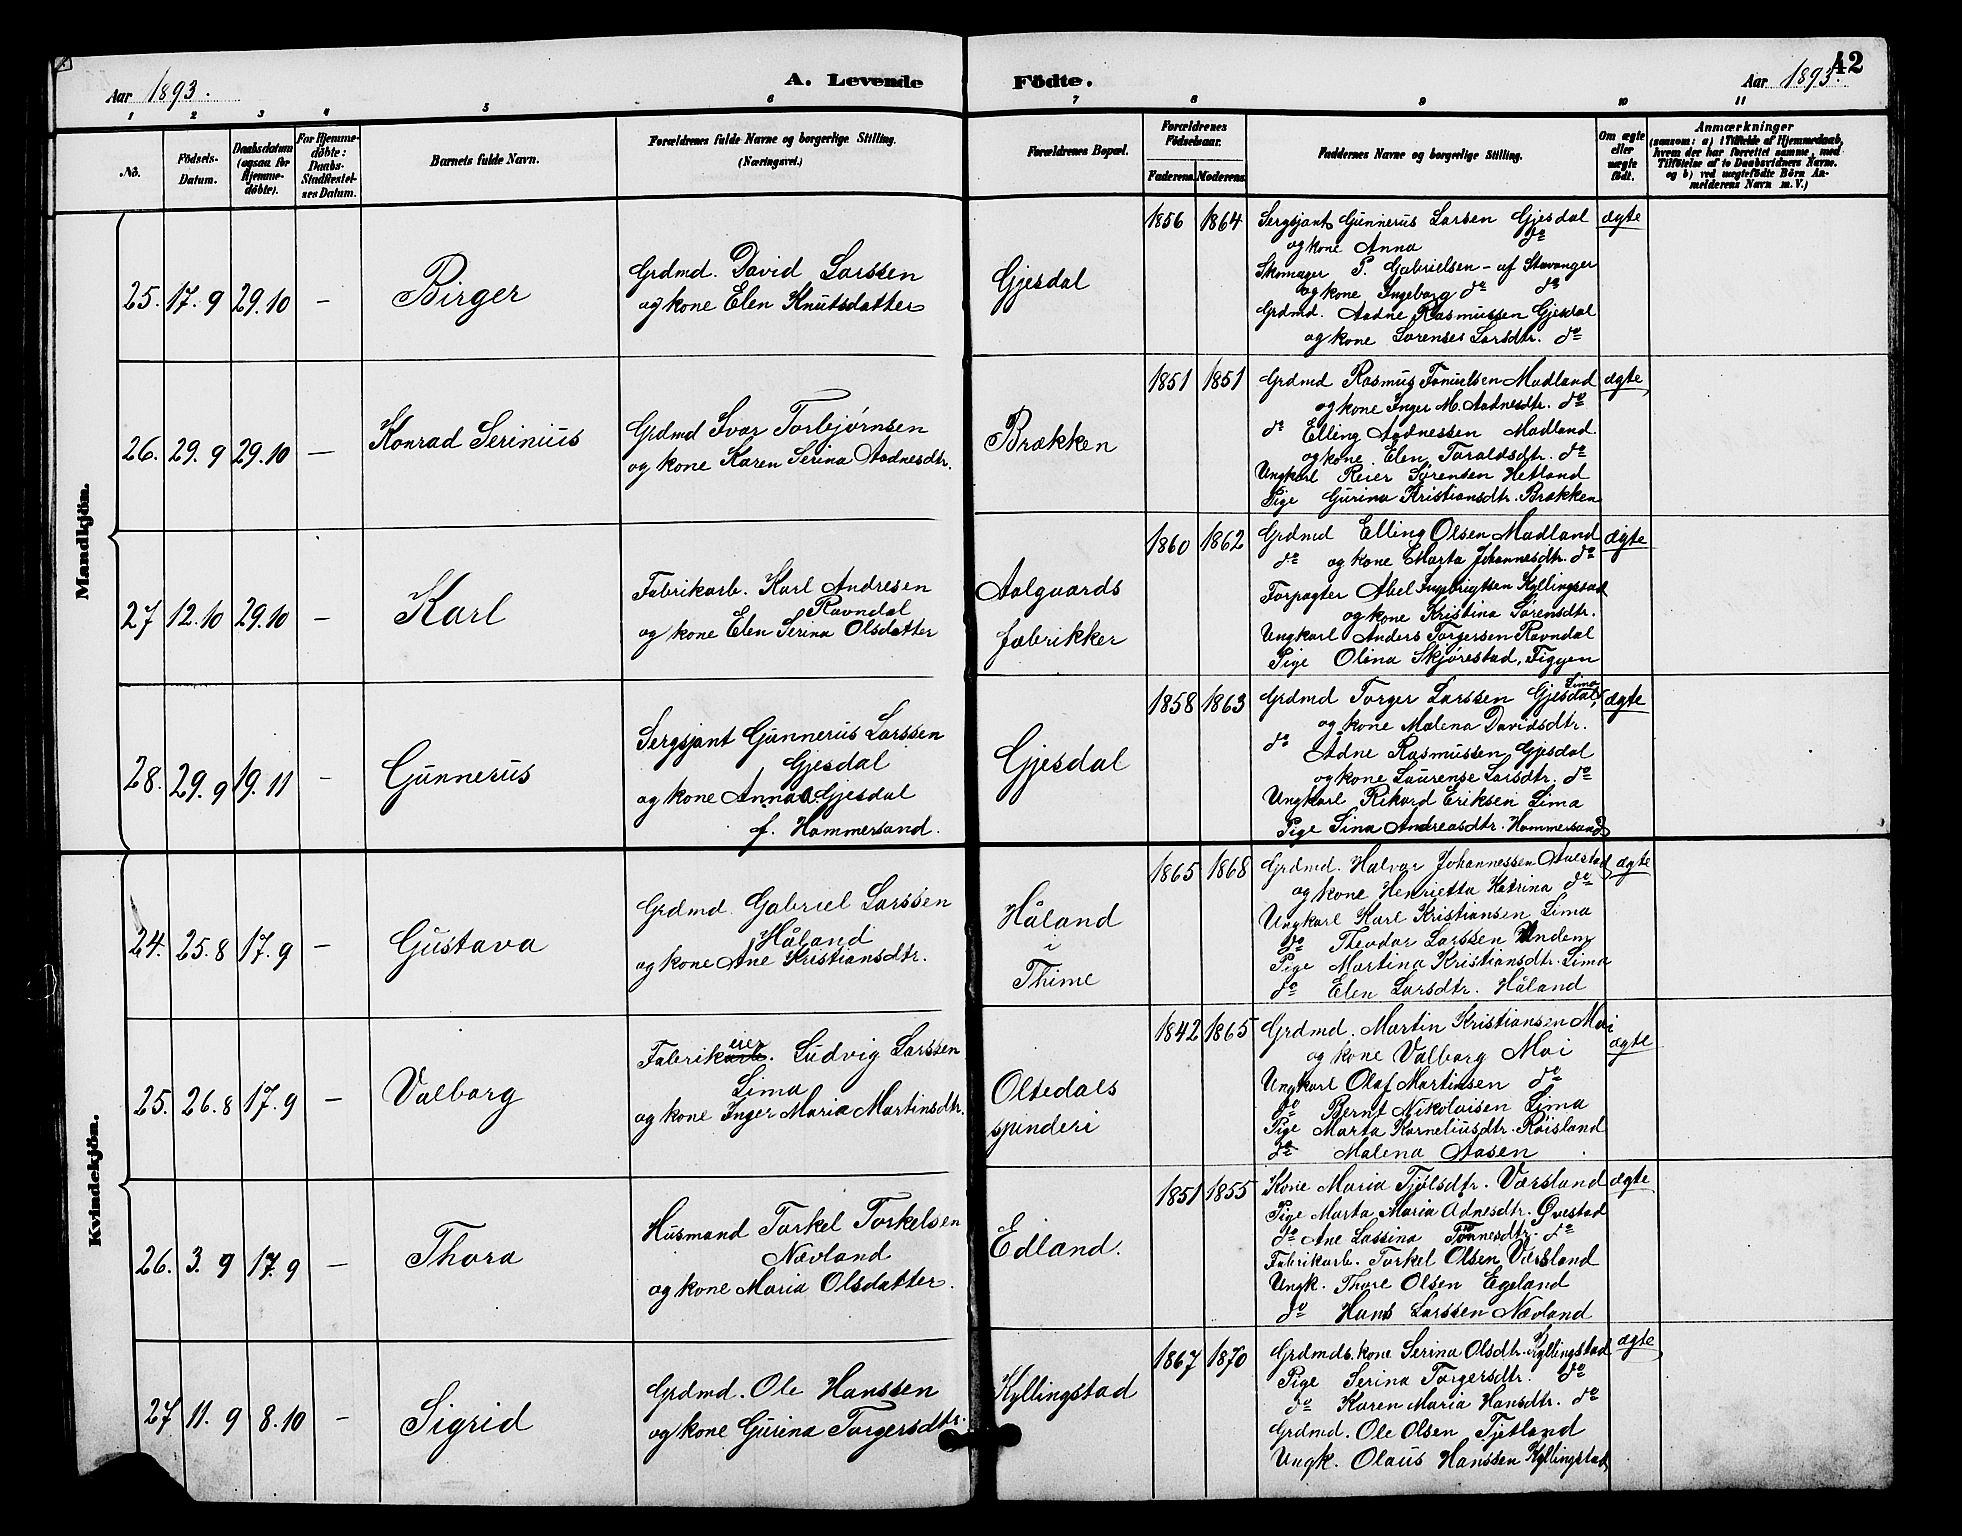 Aar 1893.
A. Levende Födte.
Aar 1893.
42
1 2 3 4 5 6 7 8 9 10 11
No.
Födsels-
Datum.
Daabsdatum
(ogsaa for
Hjemme-
döbte).
For Hjemme-
döbte:
Daabs-
Stadfæstel-
ses Datum.
Barnets fulde Navn.
Forældrenes fulde Navne og borgerlige Stilling.
(Næringsvei.)
Forældrenes Bopæl.
Forældrenes
Födselsaar.
Faderens. Moderens.
Faddernes Navne og borgerlige Stilling.
Om ægte
eller
uægte
födt.
Anmærkninger
(saasom: a) i Tilfælde af Hjemmedaab,
hvem der har forrettet samme, med
Tilföielse af to Daabsvidners Navne.
og b) ved uægtefödte Börn An-
melderens Navn m. V.)
Mandkjön.
25. 17. 9 29.10 —
Birger
Grdmd. David Larssen
og kone Elen Knutsdatter
Gjesdal
1856 1864
Sergsjant Gunnerus Larsen Gjesdal
og kone Anna do
Skomager P. Gabrielsen - af Stavanger
og kone Ingeborg do do
Grdmd. Aadne Rasmussen Gjesdal
og kone Lorense Larsdtr. do
ægte
26. 29. 9 29.10 —
Konrad Serinius
Grdmd Ivar Torbjørnsen
og kone Karen Serina Aadnesdtr.
Brækken
1851 1851
Grdmd Rasmus Tønnesen Madland
og kone Inger M. Aadnesdtr. do
do Elling Aadnessen Madland.
og kone Elen Taraldsdtr. do
Ungkarl Reier Sørensen Hetland
Pige Gurina Kristiansdtr. Brækken
ægte
27 12.10 29.10 —
Karl
Fabrikarb. Karl Andresen
Ravndal
og kone Elen Serina Olsdatter
Aalgaards
fabrikker
1860 1862
Grdmd Elling Olsen Madland
do og kone Marta Johannesdtr. do
Forpagter Abel Ingbrigtsen Kyllingstad
og kone Kristina Sørensdtr.
Ungkarl Anders Torgersen Ravndal
Pige Olina Skjørestad, Figgen
ægte
28. 29. 9 19. 11 —
Gunnerus
Sergsjant Gunnerus Larssen
Gjesdal
og kone Anna Gjesdal
f. Hammersand.
Gjesdal
1858 1863
Grdmd Torger Larssen Gjesdal, Lima
og kone Malena Davidsdtr.
do Adne Rasmussen Gjesdal
og kone Laurense Larsdtr. do
Ungkarl Rikard Eriksen Lima
Pige Sina Andreasdtr. Hammersand
ægte
Kvindekjön.
24. 25. 8 17. 9 —
Gustava
Grdmd. Gabriel Larssen
Håland
og kone Ane Kristiansdtr.
Håland
i
Thime
1865 1868
Grdmd. Halvor Johannessen Auestad
og kone Henrietta Katrina do
Ungkarl Karl Kristiansen Lima
do Theodor Larssen Undem
Pige Martina Kristiansdtr. Lima
do Elen Larsdtr. Håland
ægte
25. 26. 8 17. 9 —
Valborg
Fabrikeier. Ludvig Larssen
Lima
og kone Inger Maria Martinsdtr.
Oltedals
spinderi
1842 1865
Grdmd. Martin Kristiansen Moi
og kone Valborg Moi
Ungkarl Olaf Martinsen do
do Bernt Nikolaisen Lima
Pige Marta Korneliusdtr. Røisland
do Malena Aasen
ægte
26. 3. 9 17. 9 —
Thora
Husmand Torkel Torkelsen
Nævland
og kone Maria Olsdatter.
Edland.
1851 1855
Kone Maria Tjølsdtr. Værsland
Pige Marta Maria Adnesdtr. Øvestad
do Ane Lassina Tønnesdtr. do
Fabrikarb. Torkel Olsen Værsland
Ungk. Thore Olsen Egeland
do Hans Larssen Nævland
ægte
27 11. 9 8.10 —
Sigrid
Grdmd. Ole Hanssen
og kone Gurina Torgersdtr.
Kyllingstad
1867 1870
Grdmds. kone Serina Olsdtr. Kyllingstad
Pige Serina Torgersdtr. do
do Karen Maria Hansdtr. do
Grdmd. Ole Olsen Tjetland
Ungk. Olaus Hanssen Kyllingstad
ægte